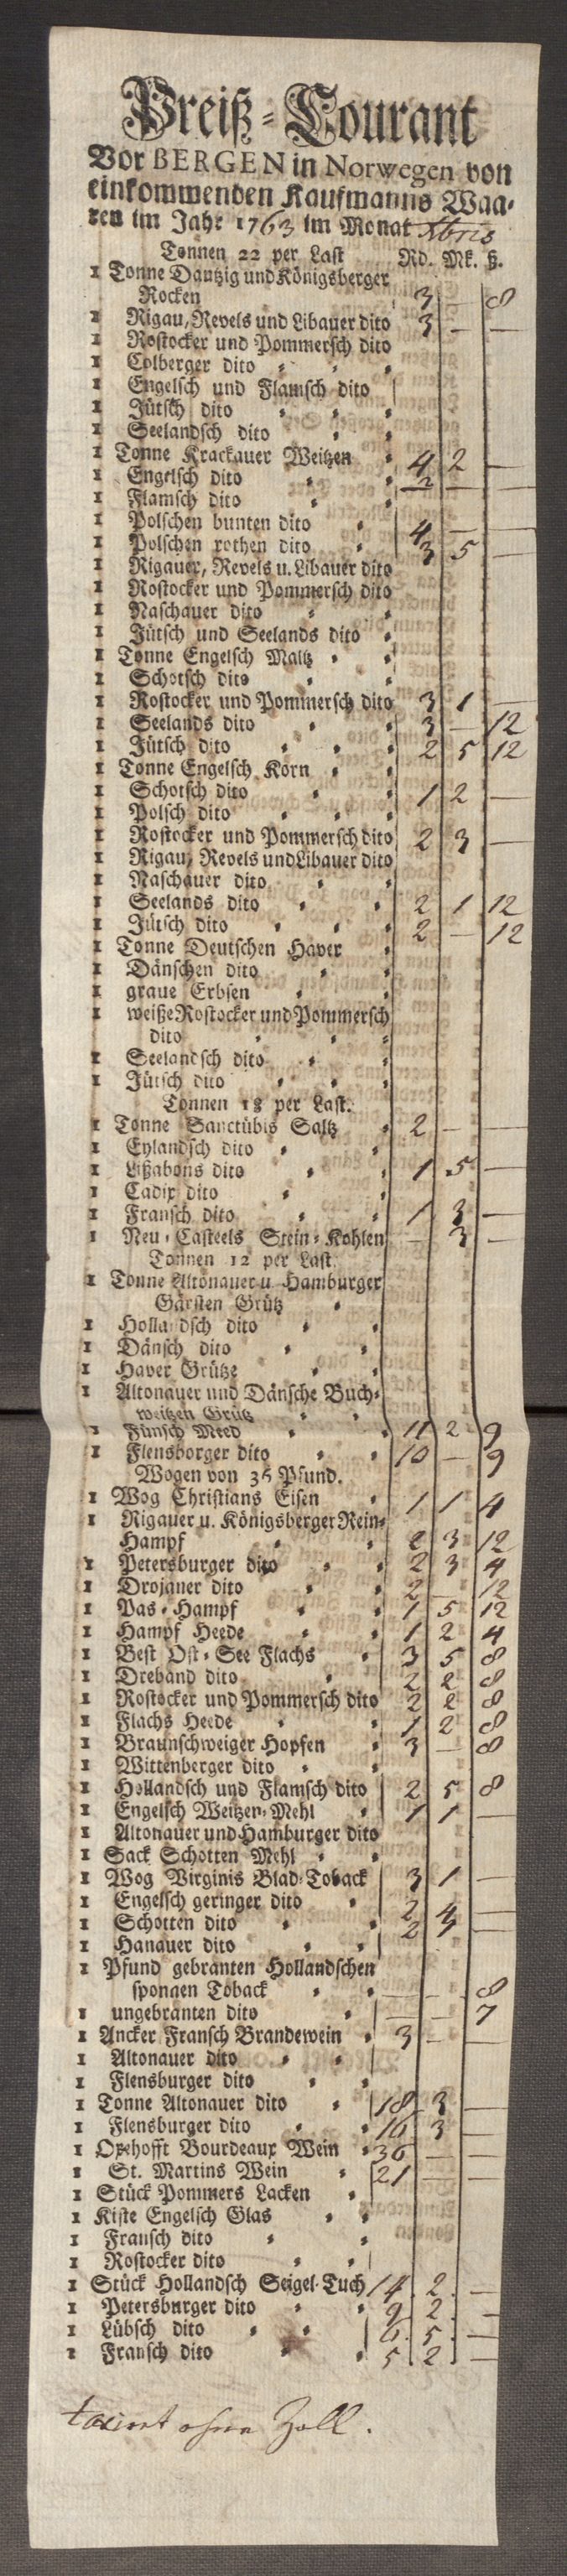 Preiß-Courant
Vor BERGEN in Norwegen von
einkommenden Kaufmanns Waa-
ren im Jahr 1763 im Monat Xbris
Tonnen 22 per Last Rd. Mk. ß.
1 Tonne Dantzig und Königsberger
Rocken 3 — 8
1 Rigau, Revels und Libauer dito 3 — —
1 Rostocker und Pommersch dito
1 Colberger dito
1 Engelsch und Flamsch dito
1 Jütsch dito
1 Seelandsch dito
1 Tonne Krackauer Weitzen 4 2 —
1 Engelsch dito — —
1 Flamsch dito
1 Polschen bunten dito 4 — —
1 Polschen rothen dito 3 5 —
1 Rigauer, Revels u. Libauer dito
1 Rostocker und Pommersch dito
1 Naschauer dito
1 Jütsch und Seelands dito
1 Tonne Engelsch Maltz
1 Schotsch dito
1 Rostocker und Pommersch dito 3 1 —
1 Seelands dito 3 — 12
1 Jütsch dito 2 5 12
1 Tonne Engelsch Korn
1 Schotsch dito 1 2 —
1 Polsch dito
1 Rostocker und Pommersch dito 2 3 —
1 Rigau, Revels und Libauer dito
1 Naschauer dito
1 Seelands dito 2 1 12
1 Jütsch dito 2 — 12
1 Tonne Deutschen Haver
1 Dänschen dito
1 graue Erbsen
1 weiße Rostocker und Pommersch
dito
1 Seelandsch dito
1 Jütsch dito
Tonnen 18 per Last.
1 Tonne Sanctübis Saltz 2 — —
1 Eylandsch dito
1 Lißabons dito 1 5 —
1 Cadix dito
1 Fransch dito 1 3 —
1 Neu-Casteels Stein-Kohlen — 3 —
Tonnen 12 per Last.
1 Tonne Altonauer u. Hamburger
Gärsten Grütz
1 Hollandsch dito
1 Dänsch dito
1 Haver Grütze
1 Altonauer und Dänsche Buch-
weitzen Grütz
1 Fünsch Meed 11 2 9
1 Flensborger dito 10 — 9
Wogen von 36 Pfund.
1 Wog Christians Eisen 1 1 4
1 Rigauer u. Königsberger Rein-
Hampf 2 3 12
1 Petersburger dito 2 3 4
1 Drojaner dito 2 — 12
1 Pas-Hampf 1 5 12
1 Hampf Heede 1 2 4
1 Best Ost-See Flachs 3 5 8
1 Dreband dito 2 2 8
1 Rostocker und Pommersch dito 2 2 8
1 Flachs Heede 1 2 8
1 Braunschweiger Hopfen 3 — 8
1 Wittenberger dito
1 Hollandsch und Flamsch dito 2 5 8
1 Engelsch Weitzen-Mehl 1 1 —
1 Altonauer und Hamburger dito
1 Sack Schotten Mehl
1 Wog Virginis Blad-Toback 3 1 —
1 Engelsch geringer dito 2 4 —
1 Schotten dito 2 —
1 Hanauer dito
1 Pfund gebranten Hollandschen
sponnen Toback — — 8
1 ungebranten dito — — 7
1 Ancker Fransch Brandewein 3 — —
1 Altonauer dito
1 Flensburger dito
1 Tonne Altonauer dito 18 3 —
1 Flensburger dito 16 3 —
1 Oxehofft Bourdeaux Wein 36 — —
1 St. Martins Wein 21 — —
1 Stück Pommers Lacken
1 Kiste Engelsch Glas
1 Fransch dito
1 Rostocker dito
1 Stück Hollandsch Seigel-Tuch 14 2 —
1 Petersburger dito 9 2 —
1 Lübsch dito 6 5 —
1 Fransch dito 5 2 —
taxirt ohne Zoll.